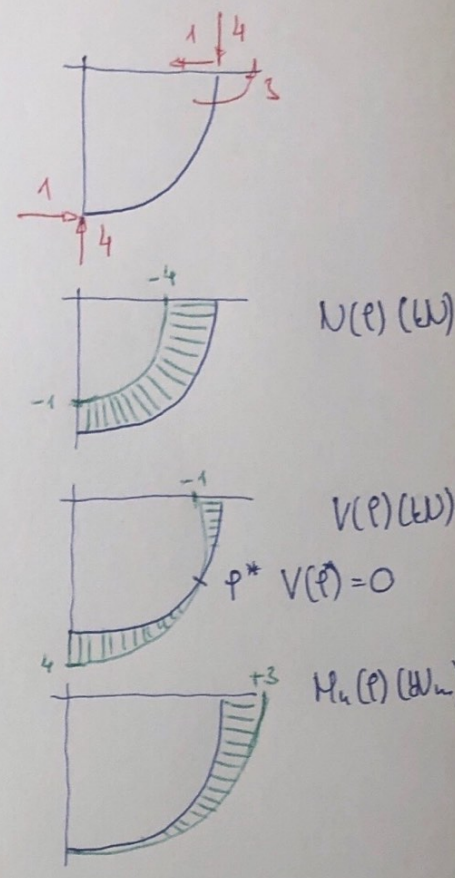 1 4
3
1
4
-4
N(φ) (kN)
-1
-1
V(φ) (kN)
φ* V(φ*)=0
4
+3
Mu(φ) (kNm)